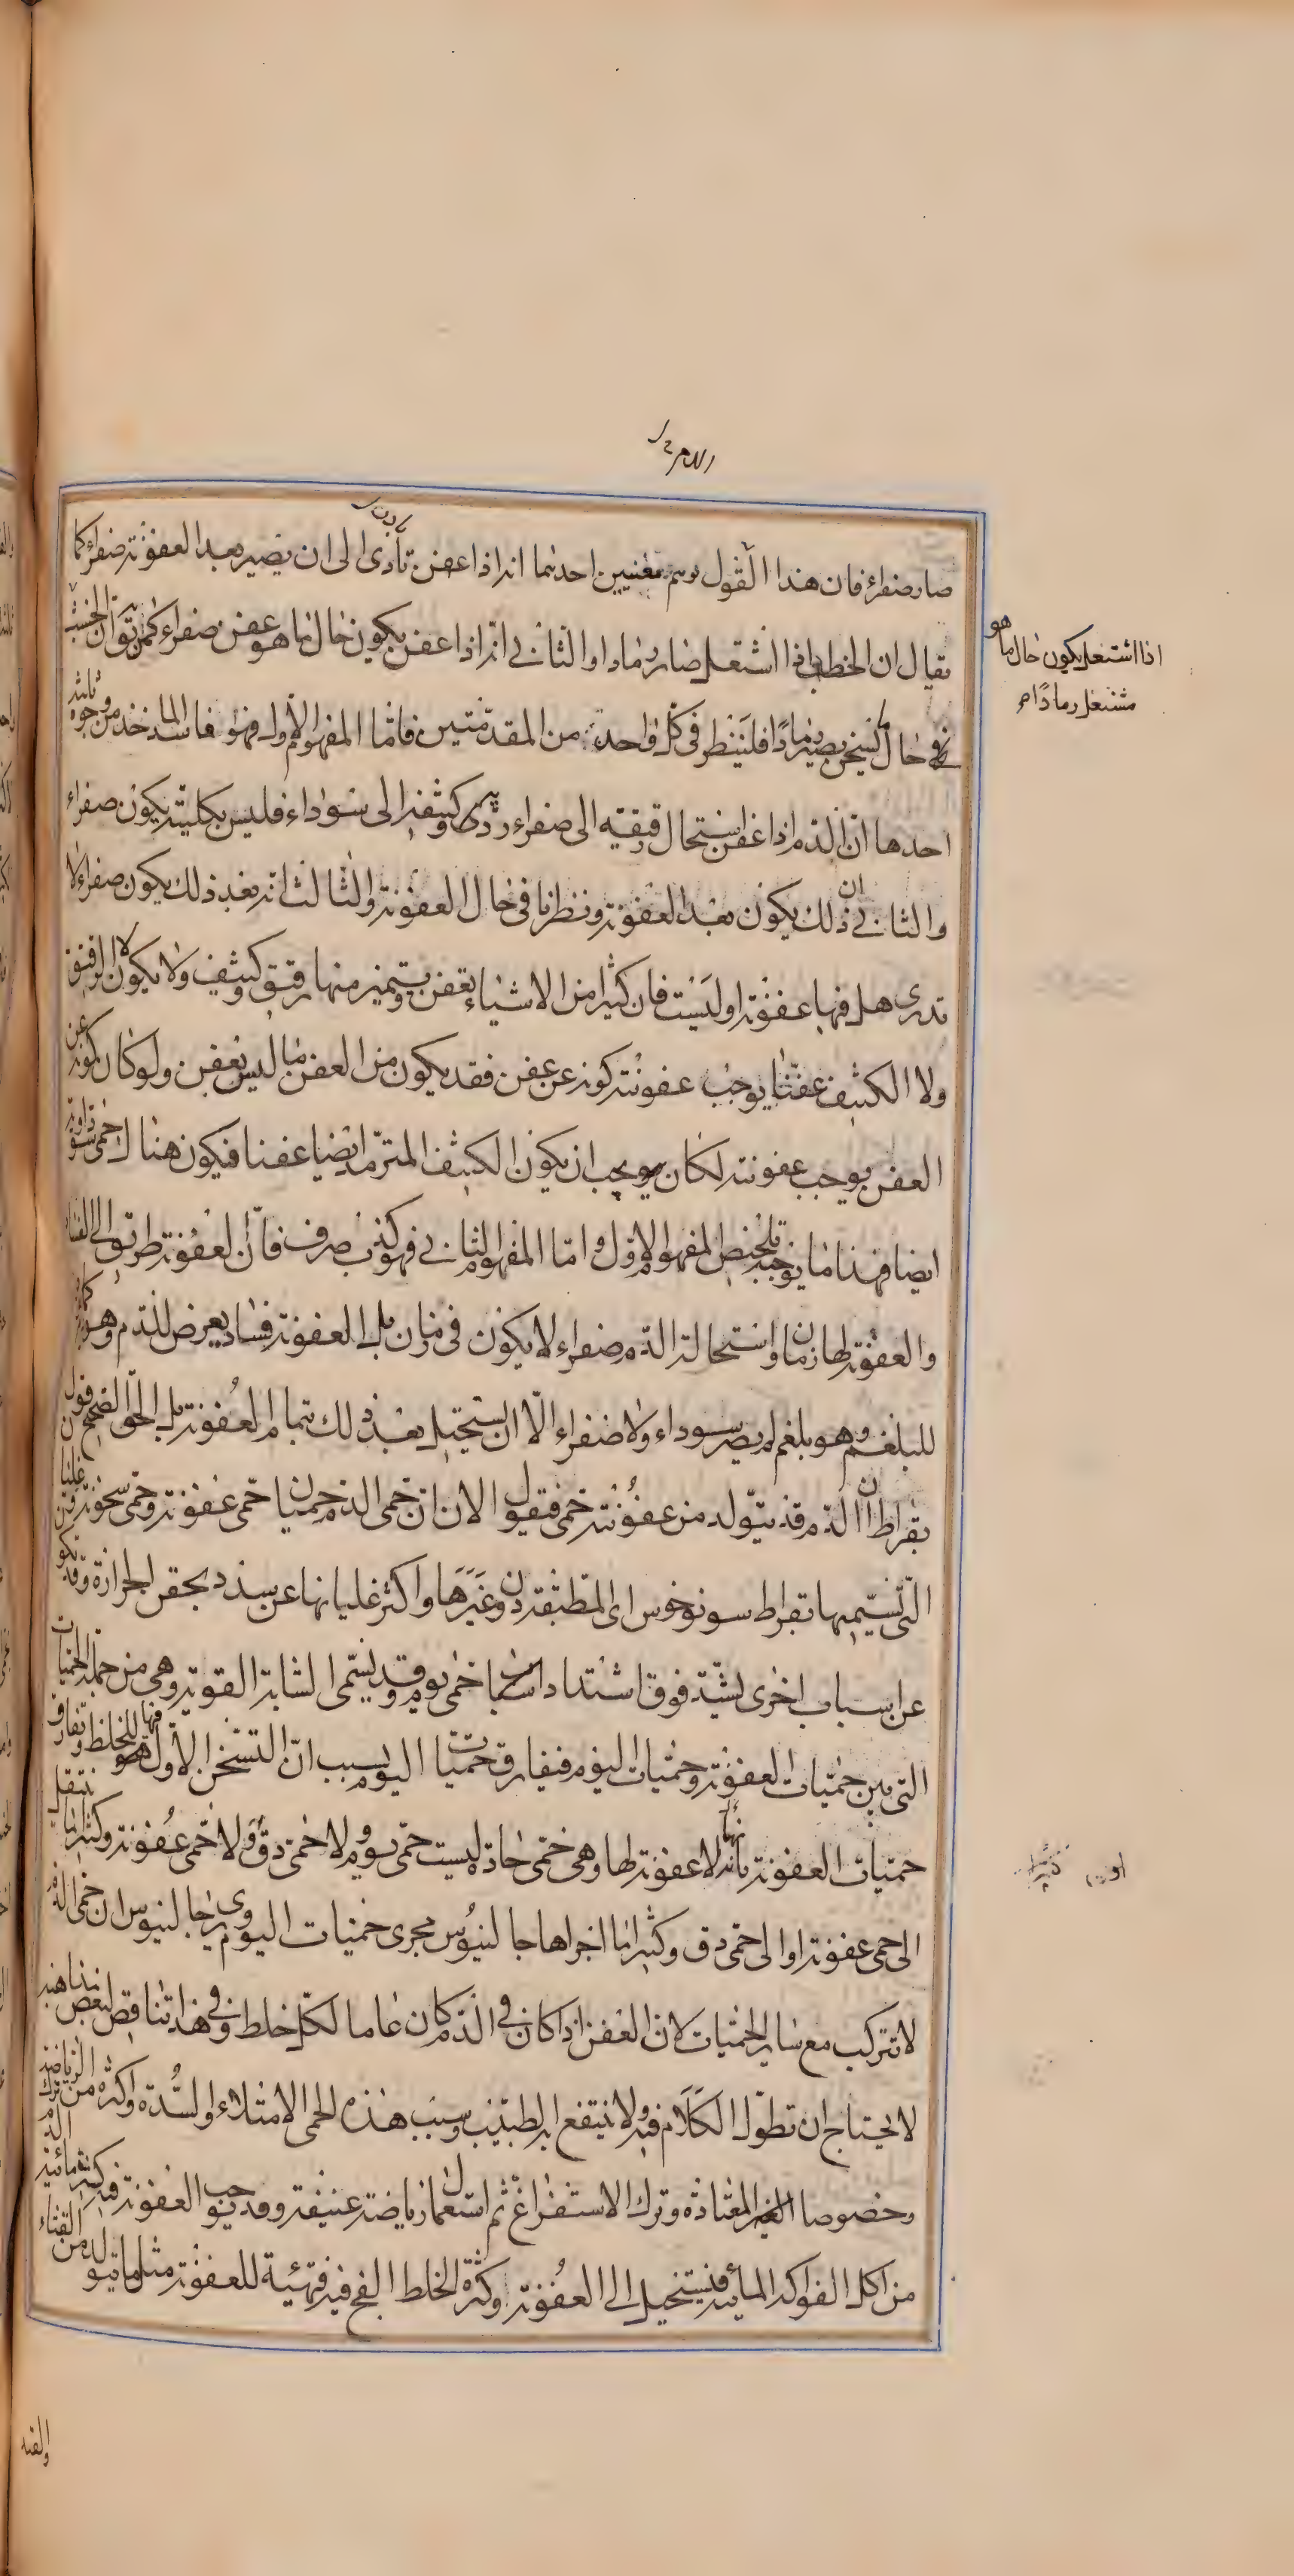 صار صفراء فان هذا القول يوهم معنيين احدهما انه اذا عفن تأدى الى ان يصير بعد العفونة صفراء كما
يقال ان الحطب اذا اشتعل صار رمادا والثانى انه اذا عفن يكون حال ما هو عفن صفراء كمن يقول ان الخشب
اذا اشتعل يكون حال ما هو
مشتعل رمادًا
فى حال ما يسخن يصير رمادًا فلينظر فى كل واحدة من المقدمتين فاما المفهوم الاول فهو فاسد الماخذ من وجوه ثلثة
احدها ان الدم اذا عفن استحال رقيقه الى صفراء ردية وكثيفه الى سوداء فليس بكليته يكون صفراء
والثانى ان ذلك يكون بعد العفونة ونظرنا فى حال العفونة والثالث انه بعد ذلك يكون صفراء لا
تدرى هل فيها عفونة او ليست فان كثيرا من الاشياء تعفن ويتميز منها رقيق وكثيف ولا يكون لا الرقيق
ولا الكثيف عفنا يوجب عفونته كونه عن عفن فقد يكون من العفن ما ليس بعفن ولو كان كونه عن
العفن يوجب عفونته لكان يوجب ان يكون الكثيف المترمد ايضا عفنا فيكون هناك حمى سوداوية
ايضا فهذا ما يوجبه تلخيص المفهوم الاول واما المفهوم الثانى فهو كذب صرف فان العفونة طريق الى الفساد
والعفونة لها زمان واستحالة الدم صفراء لا يكون فى زمان بل العفونة فساد يعرض للدم وهو دم كما
للبلغم وهو بلغم لم يصر سوداء ولا صفراء الا ان يستحيل بعد ذلك تمام العفونة بل الحق الصحيح قول
بقراط ان الدم قد يتولد من عفونته حمى فنقول الان ان حمى الدم حميان حمى عفونة وحمى سخونة وغليان
التى تسميها بقراط سونوخوس اى المطبقة دون غيرها واكثر غليانها عن سدد تحقن الحرارة وقد تكون
عن اسباب اخرى تشتد فوق اشتداد اسباب حمى يوم وقد تسمى الشابة القوية وهى من جملة الحميات
التى بين حميات العفونة وحميات اليوم فيفارق حميات اليوم بسبب ان التسخن الاول فيها للخلط وتفارق
حميات العفونة بانها لا عفونة لها وهى حمى حادة ليست حمى يوم ولا حمى دق ولا حمى عفونة وكثيرا ما تنتقل
الى حمى عفونة او الى حمى دق وكثيرا ما اجراها جالينوس مجرى حميات اليوم ويرى جالينوس ان حمى الدم
لا تتركب مع ساير الحميات لان العفن اذا كان فى الدم كان عاما لكل خلط وفى هذا تناقض لبعض مذاهبه
لا يحتاج ان تطول الكلام فيه ولا ينتفع به الطبيب وسبب هذه الحمى الامتلاء والسدة واكثره من ترك الرياضة
وخصوصا الغير المعتادة وترك الاستفراغ ثم استعمال رياضة عنيفة وقد يوجب العفونة فى الدم كثرة مائية
من اكل الفواكه المائية فيستحيل الى العفونة وكثرة الخلط الفج فيه فتهيئه للعفونة مثل ما يتولد من القثاء
والقثد